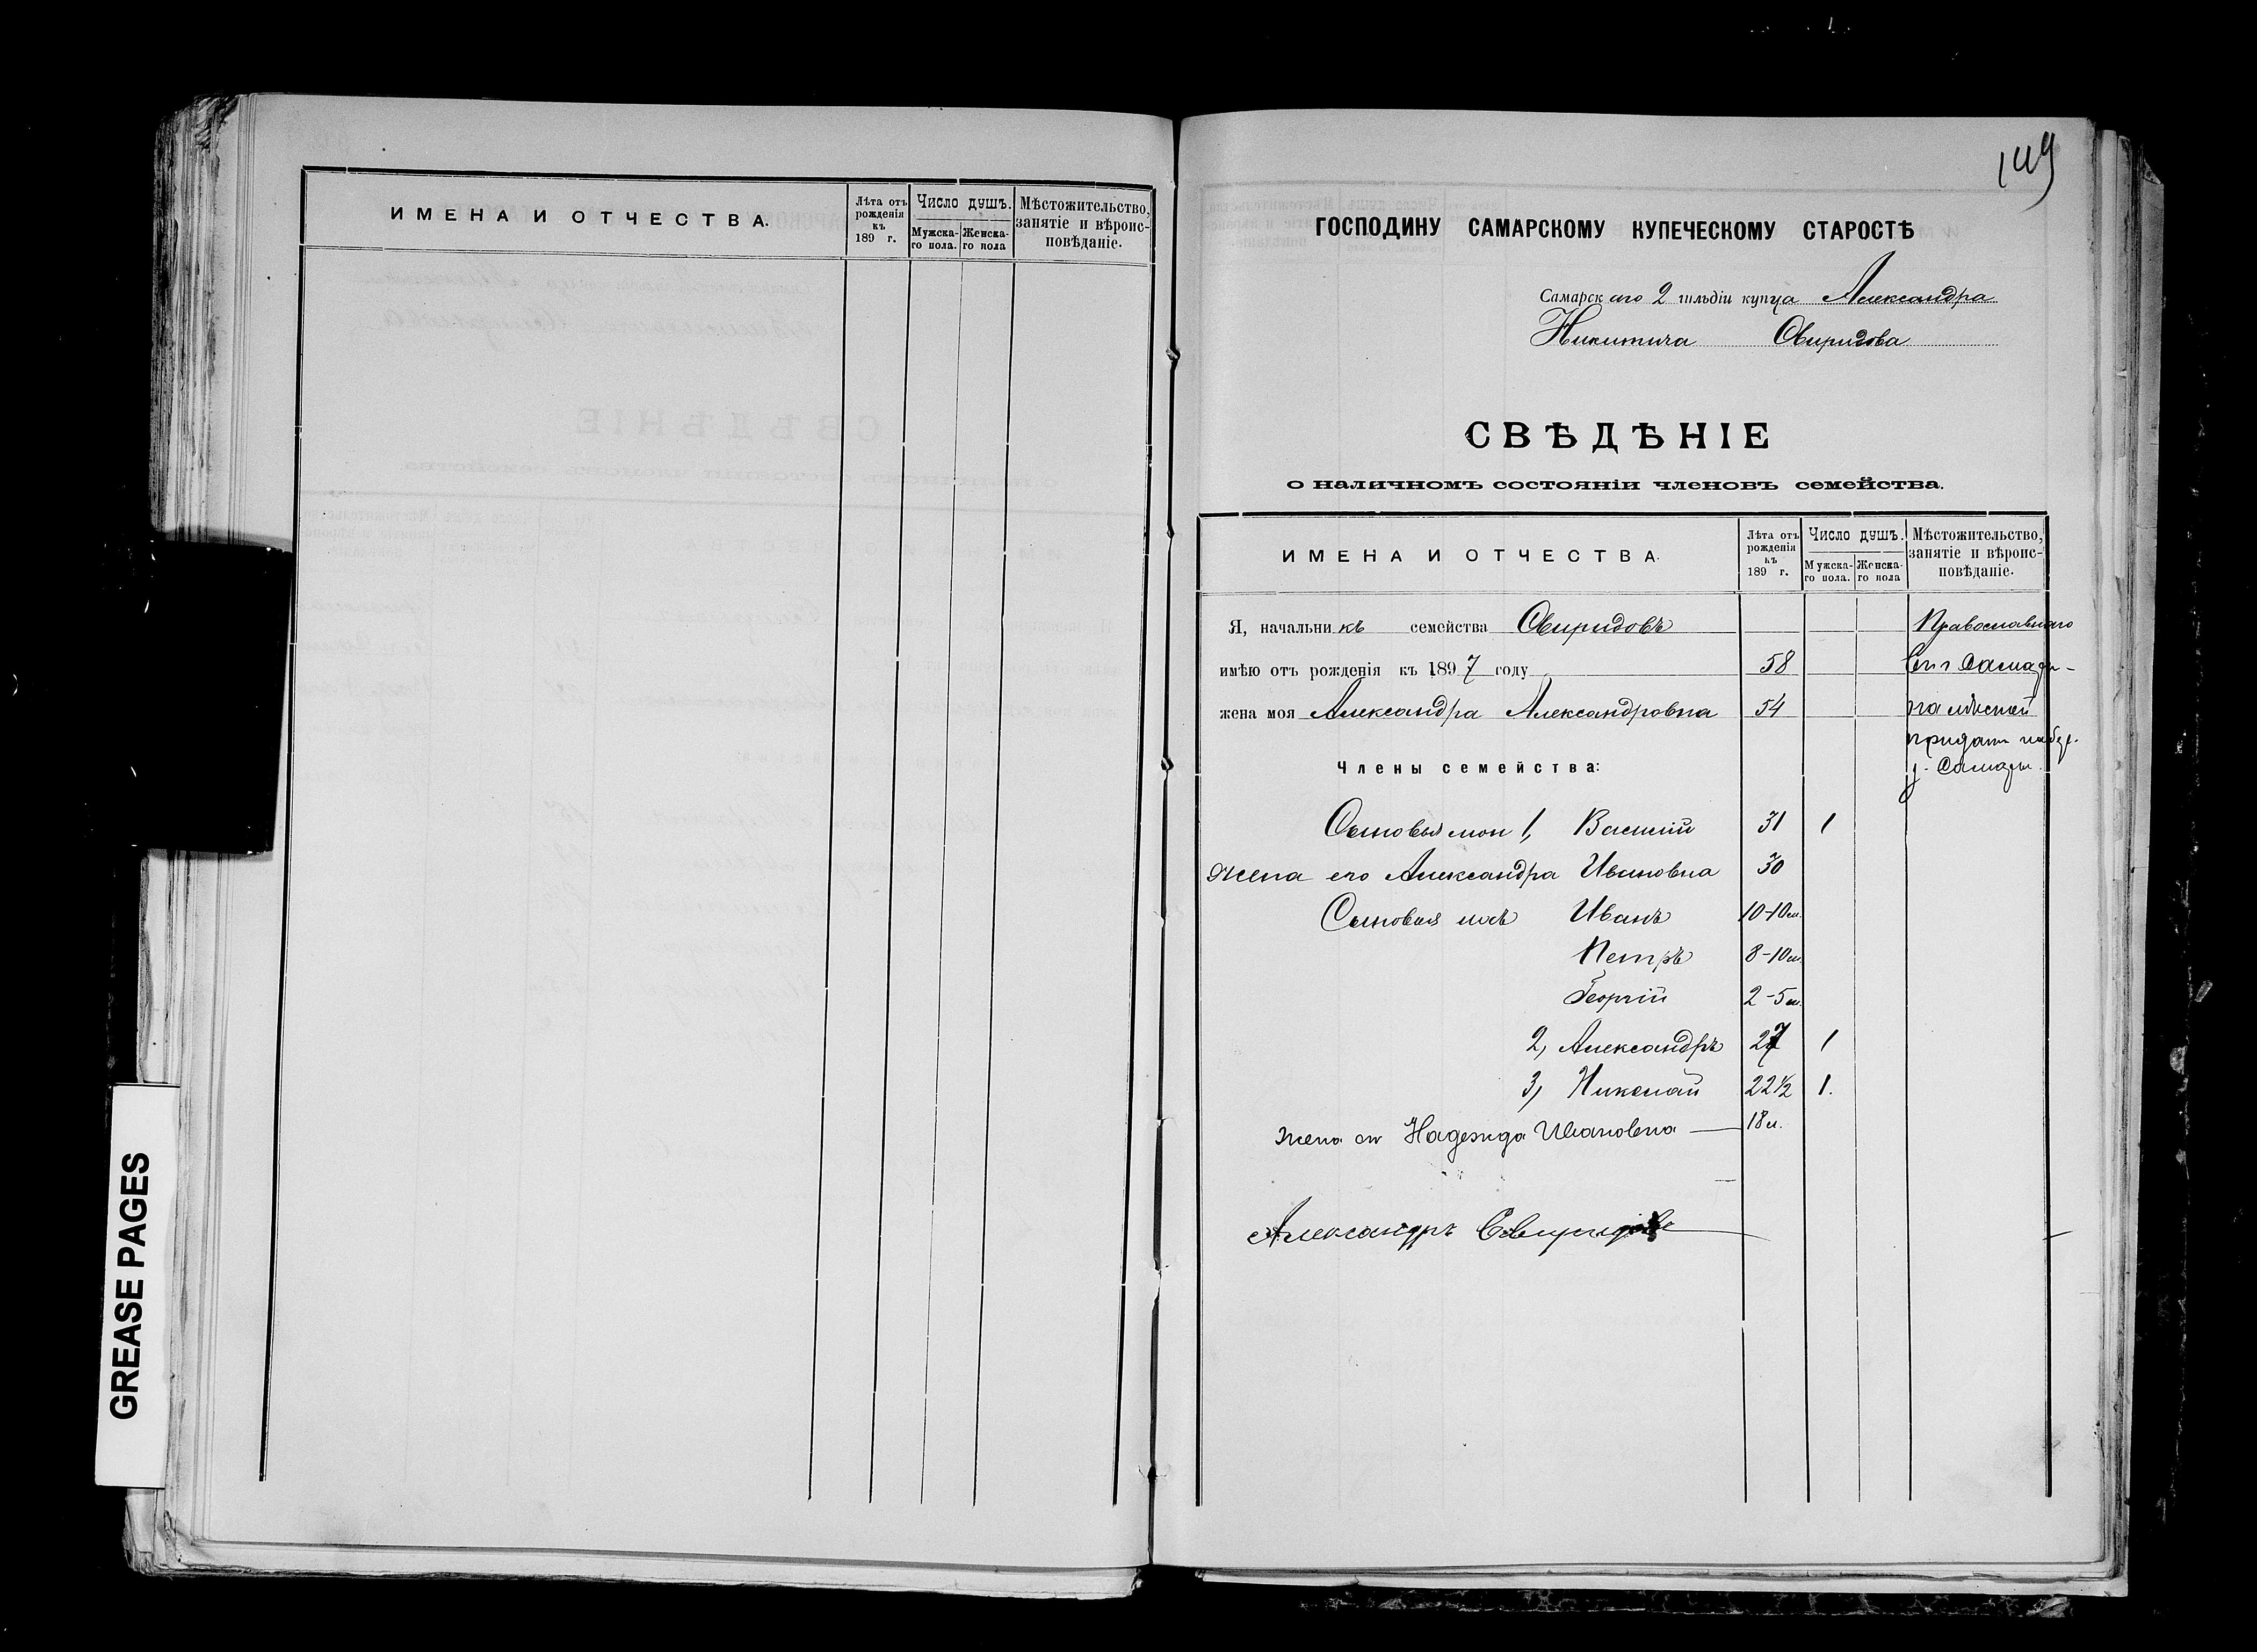 ИМЕНА И ОТЧЕСТВА.
Лѣта отъ рожденія къ 189 г.
Число душъ.
Мужска-го пола.
Женска-го пола
Мѣстожительство, занятіе и вѣроис-повѣданіе.
GREASE PAGES
149
ГОСПОДИНУ САМАРСКОМУ КУПЕЧЕСКОМУ СТАРОСТѢ
Самарскаго 2 гильдіи купца Александра
Никитича Свиридова
СВѢДѢНІЕ
о наличномъ состояніи членовъ семейства.
ИМЕНА И ОТЧЕСТВА.
Лѣта отъ рожденія къ 189 г.
Число душъ.
Мужска-го пола.
Женска-го пола
Мѣстожительство, занятіе и вѣроис-повѣданіе.
Я, начальникъ семейства Свиридовъ Православнаго
имѣю отъ рожденія къ 1897 году 58
жена моя Александра Александровна 54
Члены семейства:
г. Самары
Сыновья мои 1, Василій 31 1
Жена его Александра Ивановна 30
Сыновья ихъ Иванъ 10-10 м.
Петръ 8-10 м.
Георгій 2-5 м.
2, Александръ 27 1
3, Николай 22½ 1.
Жена ег Надежда Ивановна 18 л.
Александръ Свиридовъ